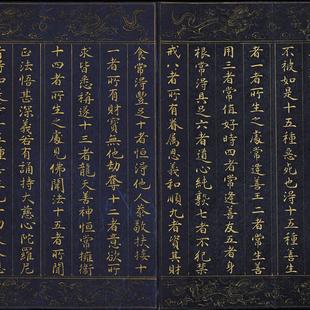 不被如是十五種惡死也得十五種善生
者一者所生之處常逢善王二者常生善
國三者常值好時四者常逢善友五者身
根常得具足六者道心純熟七者不犯禁
戒八者所有眷屬恩義和順九者資具財
食常得豐足十者恒得他人恭敬扶接十
一者所有財寶無他劫奪十二者意欲所
求皆悉稱遂十三者龍天善神恒常擁衛
十四者所生之處見佛聞法十五者所聞
正法悟甚深義若有誦持大悲心陀羅尼